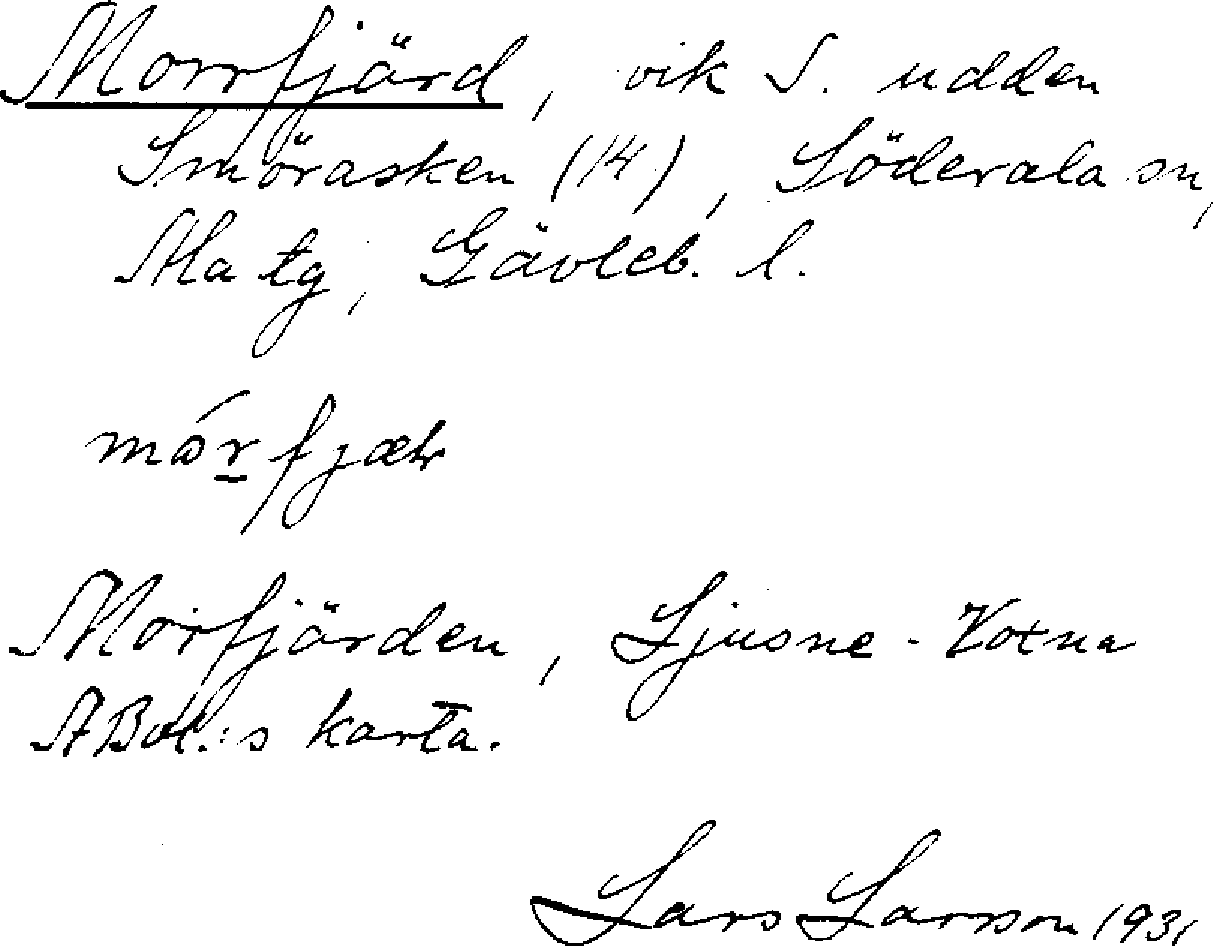 Morrfjärd, vik S. udden
Smörasken (14), Söderala sn,
Ala tg, Gävleb. l.
Morfjärden, Ljusne-Voxna
ABol.:s karta.
Lars Larsson 1931